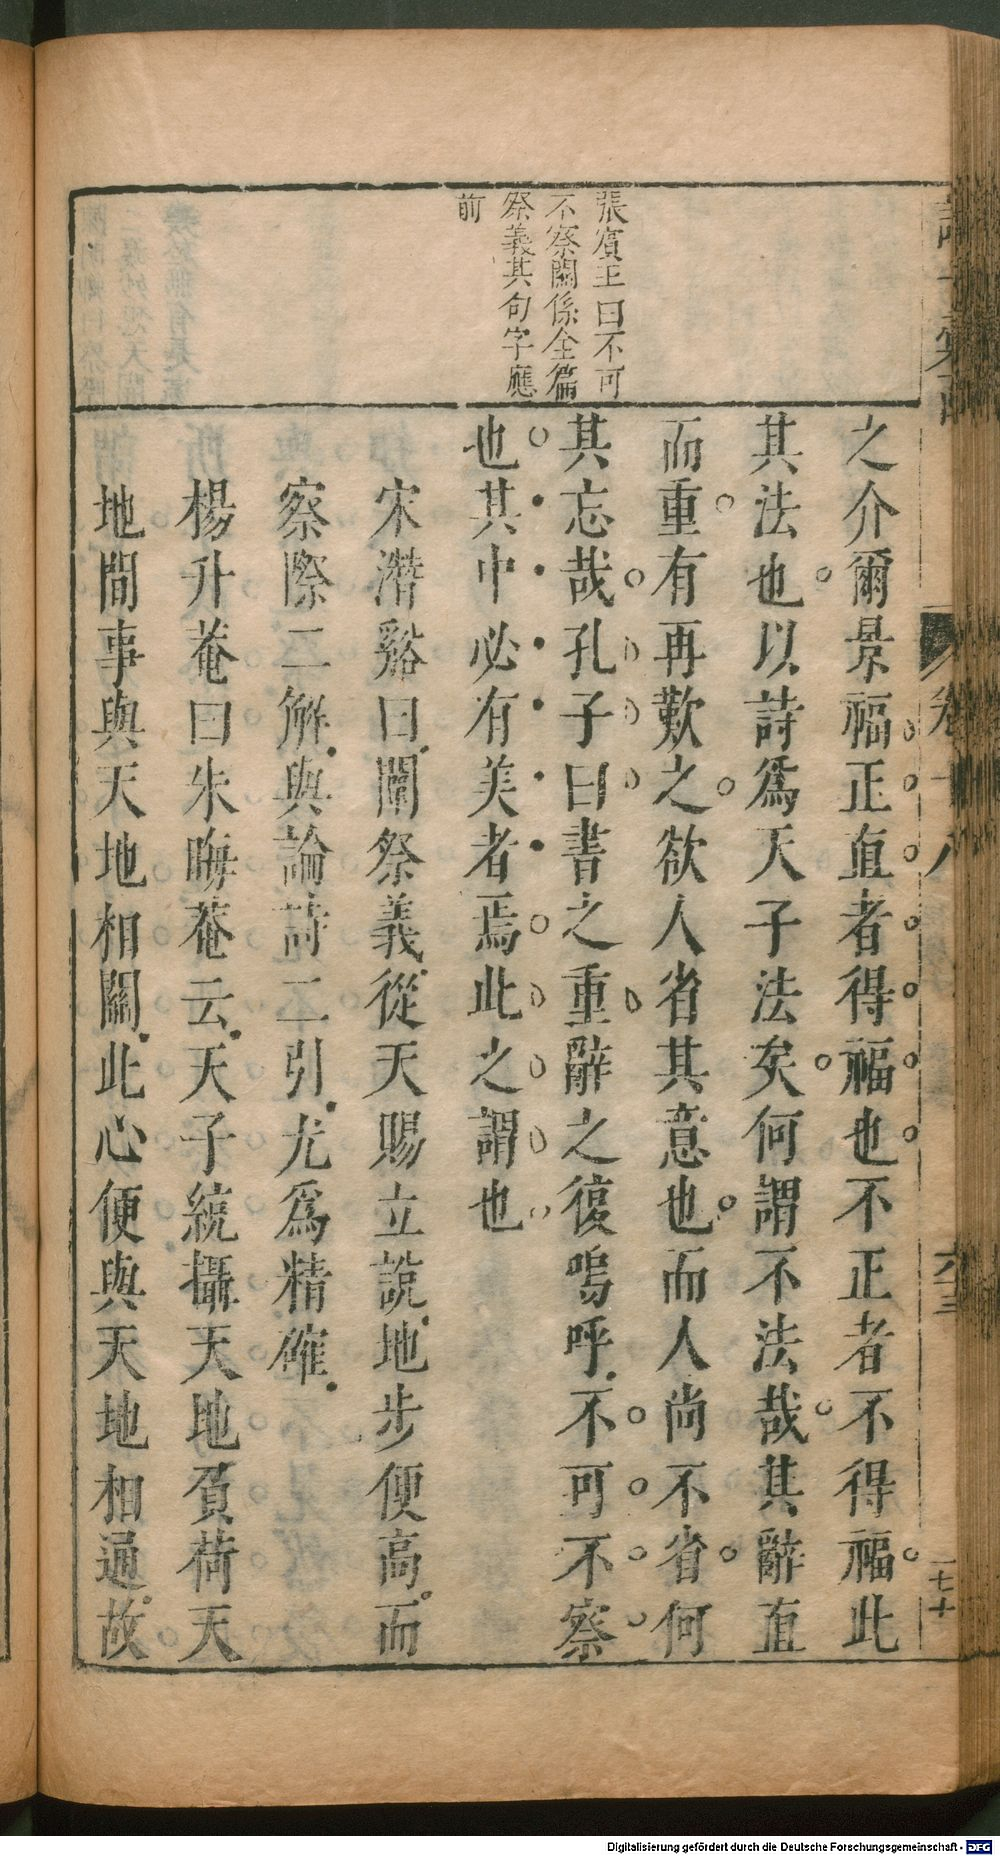 張賓王曰不可
不察關係全篇
祭義其句字應
前
之介爾景福正直者得福也不正者不得福此
其法也以詩爲天子法矣何謂不法哉其辭直
而重有再歎之欲人省其意也而人尚不省何
其忘哉孔子曰書之重辭之復嗚呼不可不察
也其中必有美者焉此之謂也
宋潛谿曰闡祭義從天賜立說地步便高而
察際二解與論詩二引尤爲精確
楊升菴曰朱晦菴云天子統攝天地負荷天
地間事與天地相關此心便與天地相通故
卷十八
六十三
一七十
Digitalisierung gefördert durch die Deutsche Forschungsgemeinschaft - DFG